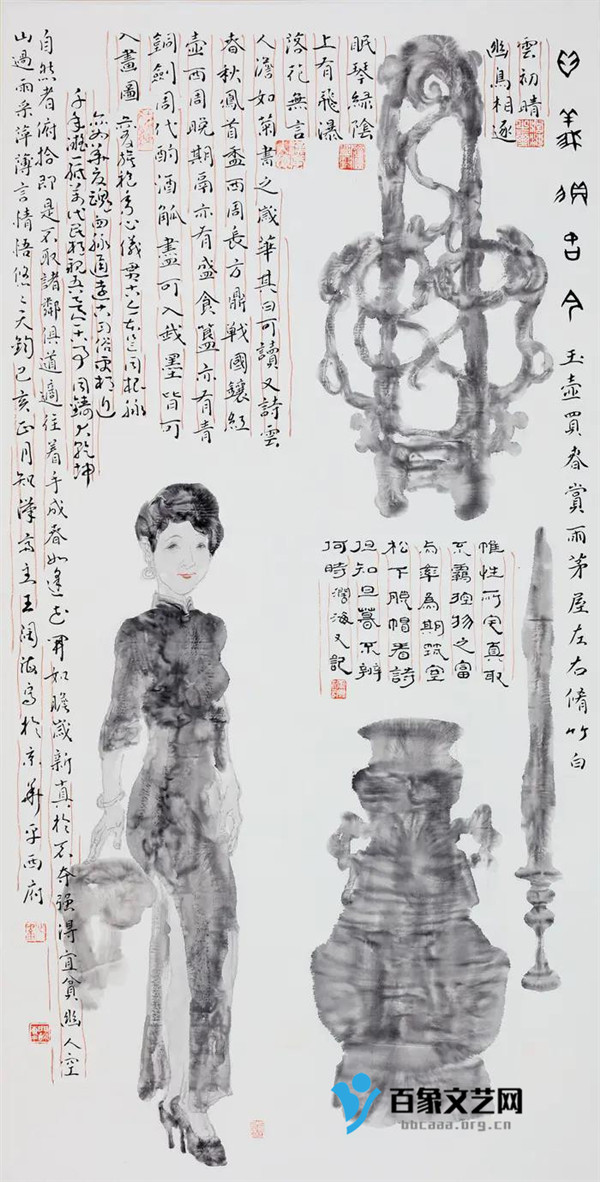 玉壺買春賞雨茅屋左右脩竹白
雲初晴
幽鳥相逐
眠琴綠陰
上有飛瀑
落花無言
人澹如菊書之歲華其曰可讀又詩雲
春秋鳳首盉西周長方鼎戰國鑲紅
壺西周晚期鬲亦有盛食簋亦有青
銅劍周代酌酒觚盡可入我墨皆可
入畫圖
自然者俯拾即是不取諸鄰俱道適往着手成春如逢花開如瞻歲新真於不奪強得宜貧幽人空
山過雨采萍薄言情悟悠〻天鈞己亥正月知漢齋主王闊海寫於京華平西府
惟性所宅真取
不羈控物之富
与率為期筑室
松下脫帽看詩
但知旦暮不辨
何時闊海又記
百象文艺网
bbcaaa.org.cn